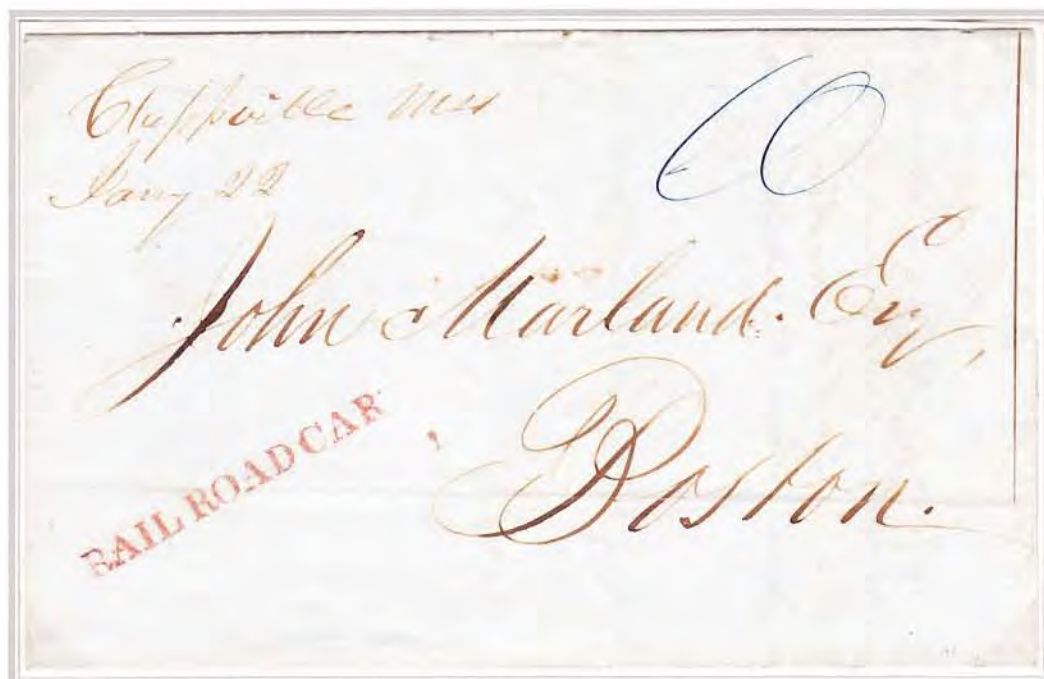 Clappville Mss
Jany 22
10
John Marland. Esq,
Boston.
RAILROADCAR